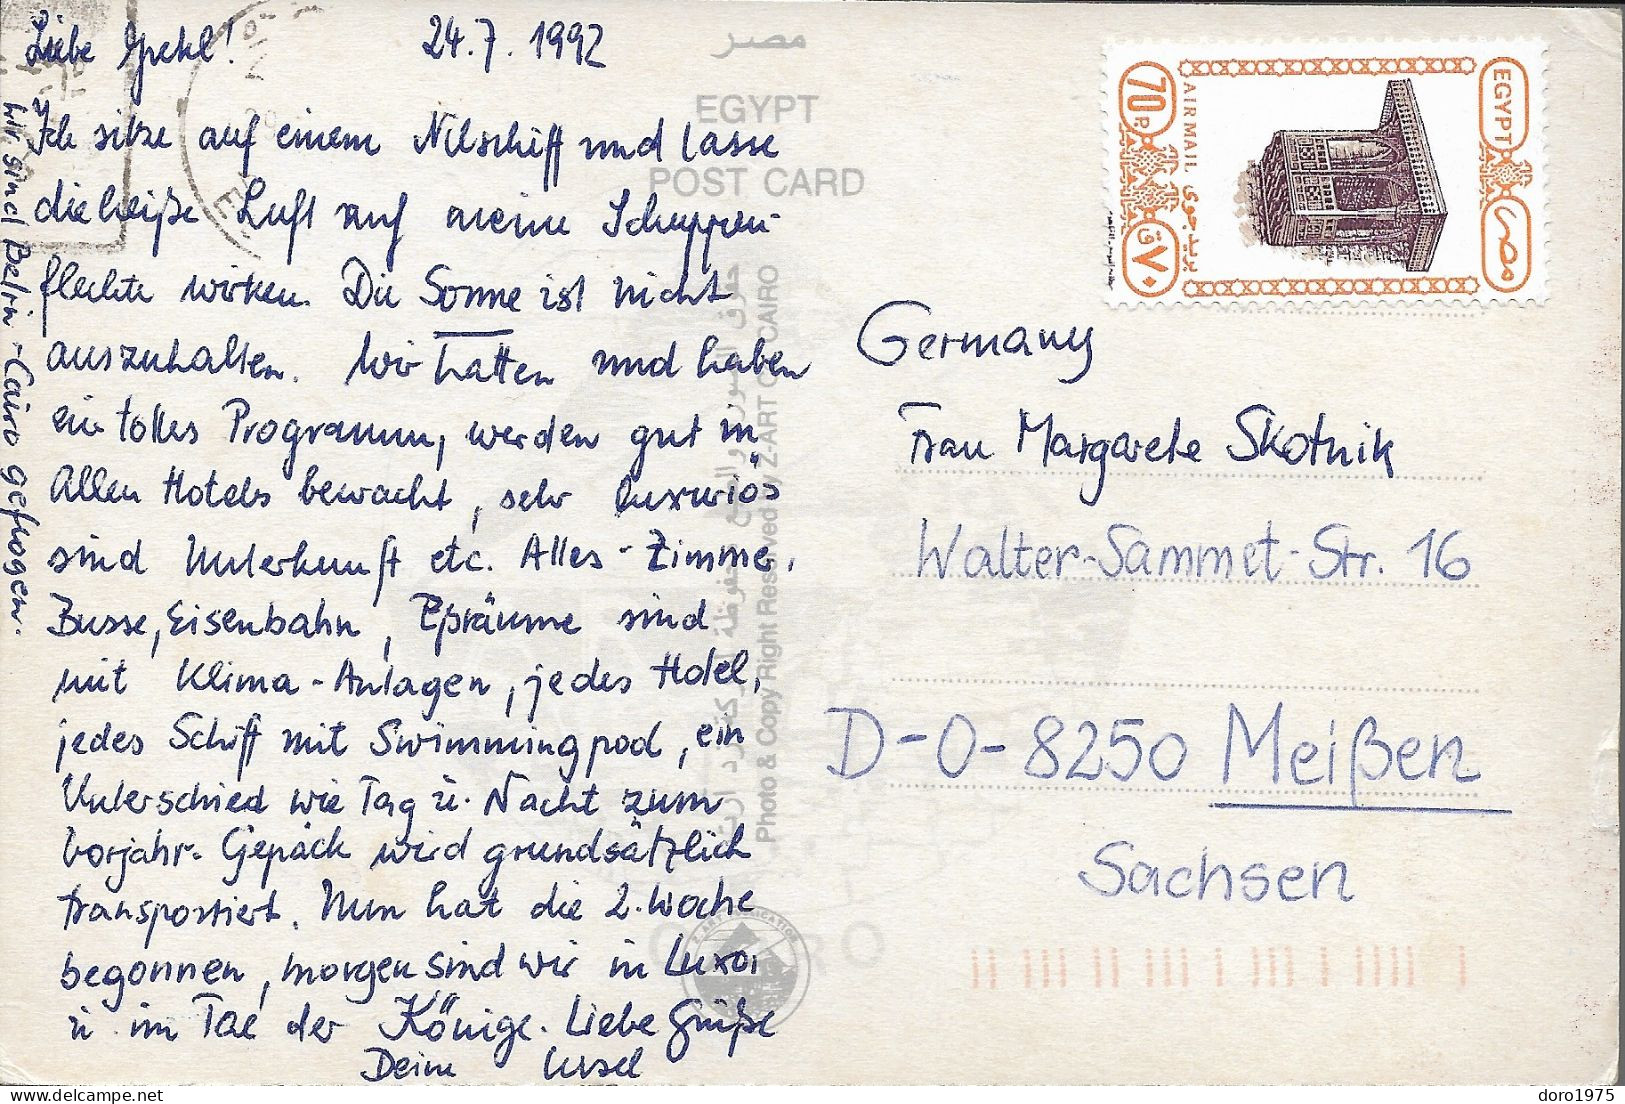 Liebe Gretel! 24.7.1992
Ich sitze auf einem Nilschiff und lasse
die heiße Luft auf meine Schuppen-
flechte wirken. Die Sonne ist nicht
auszuhalten. Wir hatten und haben
ein tolles Programm, werden gut in
Allen Hotels bewacht, sehr luxuriös
sind Unterkunft etc. Alles - Zimmer,
Busse, Eisenbahn, Eßräume sind
mit Klima-Anlagen, jedes Hotel,
jedes Schiff mit Swimmingpool, ein
Unterschied wie Tag u. Nacht zum
Vorjahr. Gepäck wird grundsätzlich
transportiert. Nun hat die 2. Woche
begonnen, morgen sind wir in Luxor
u. im Tal der Könige. Liebe Grüße
Deine Ursel
Wir sind Berlin-Cairo geflogen.
مصر
EGYPT
POST CARD
Photo & Copy Right Reserved by Z-ART CAIRO
Z-ART PUBLICATION
EGYPT
مصر
AIR MAIL
بريد جوي
70 P.
٧٠ ق
Germany
Frau Margarete Skotnik
Walter-Sammet-Str. 16
D-O-8250 Meißen
Sachsen
doro1975